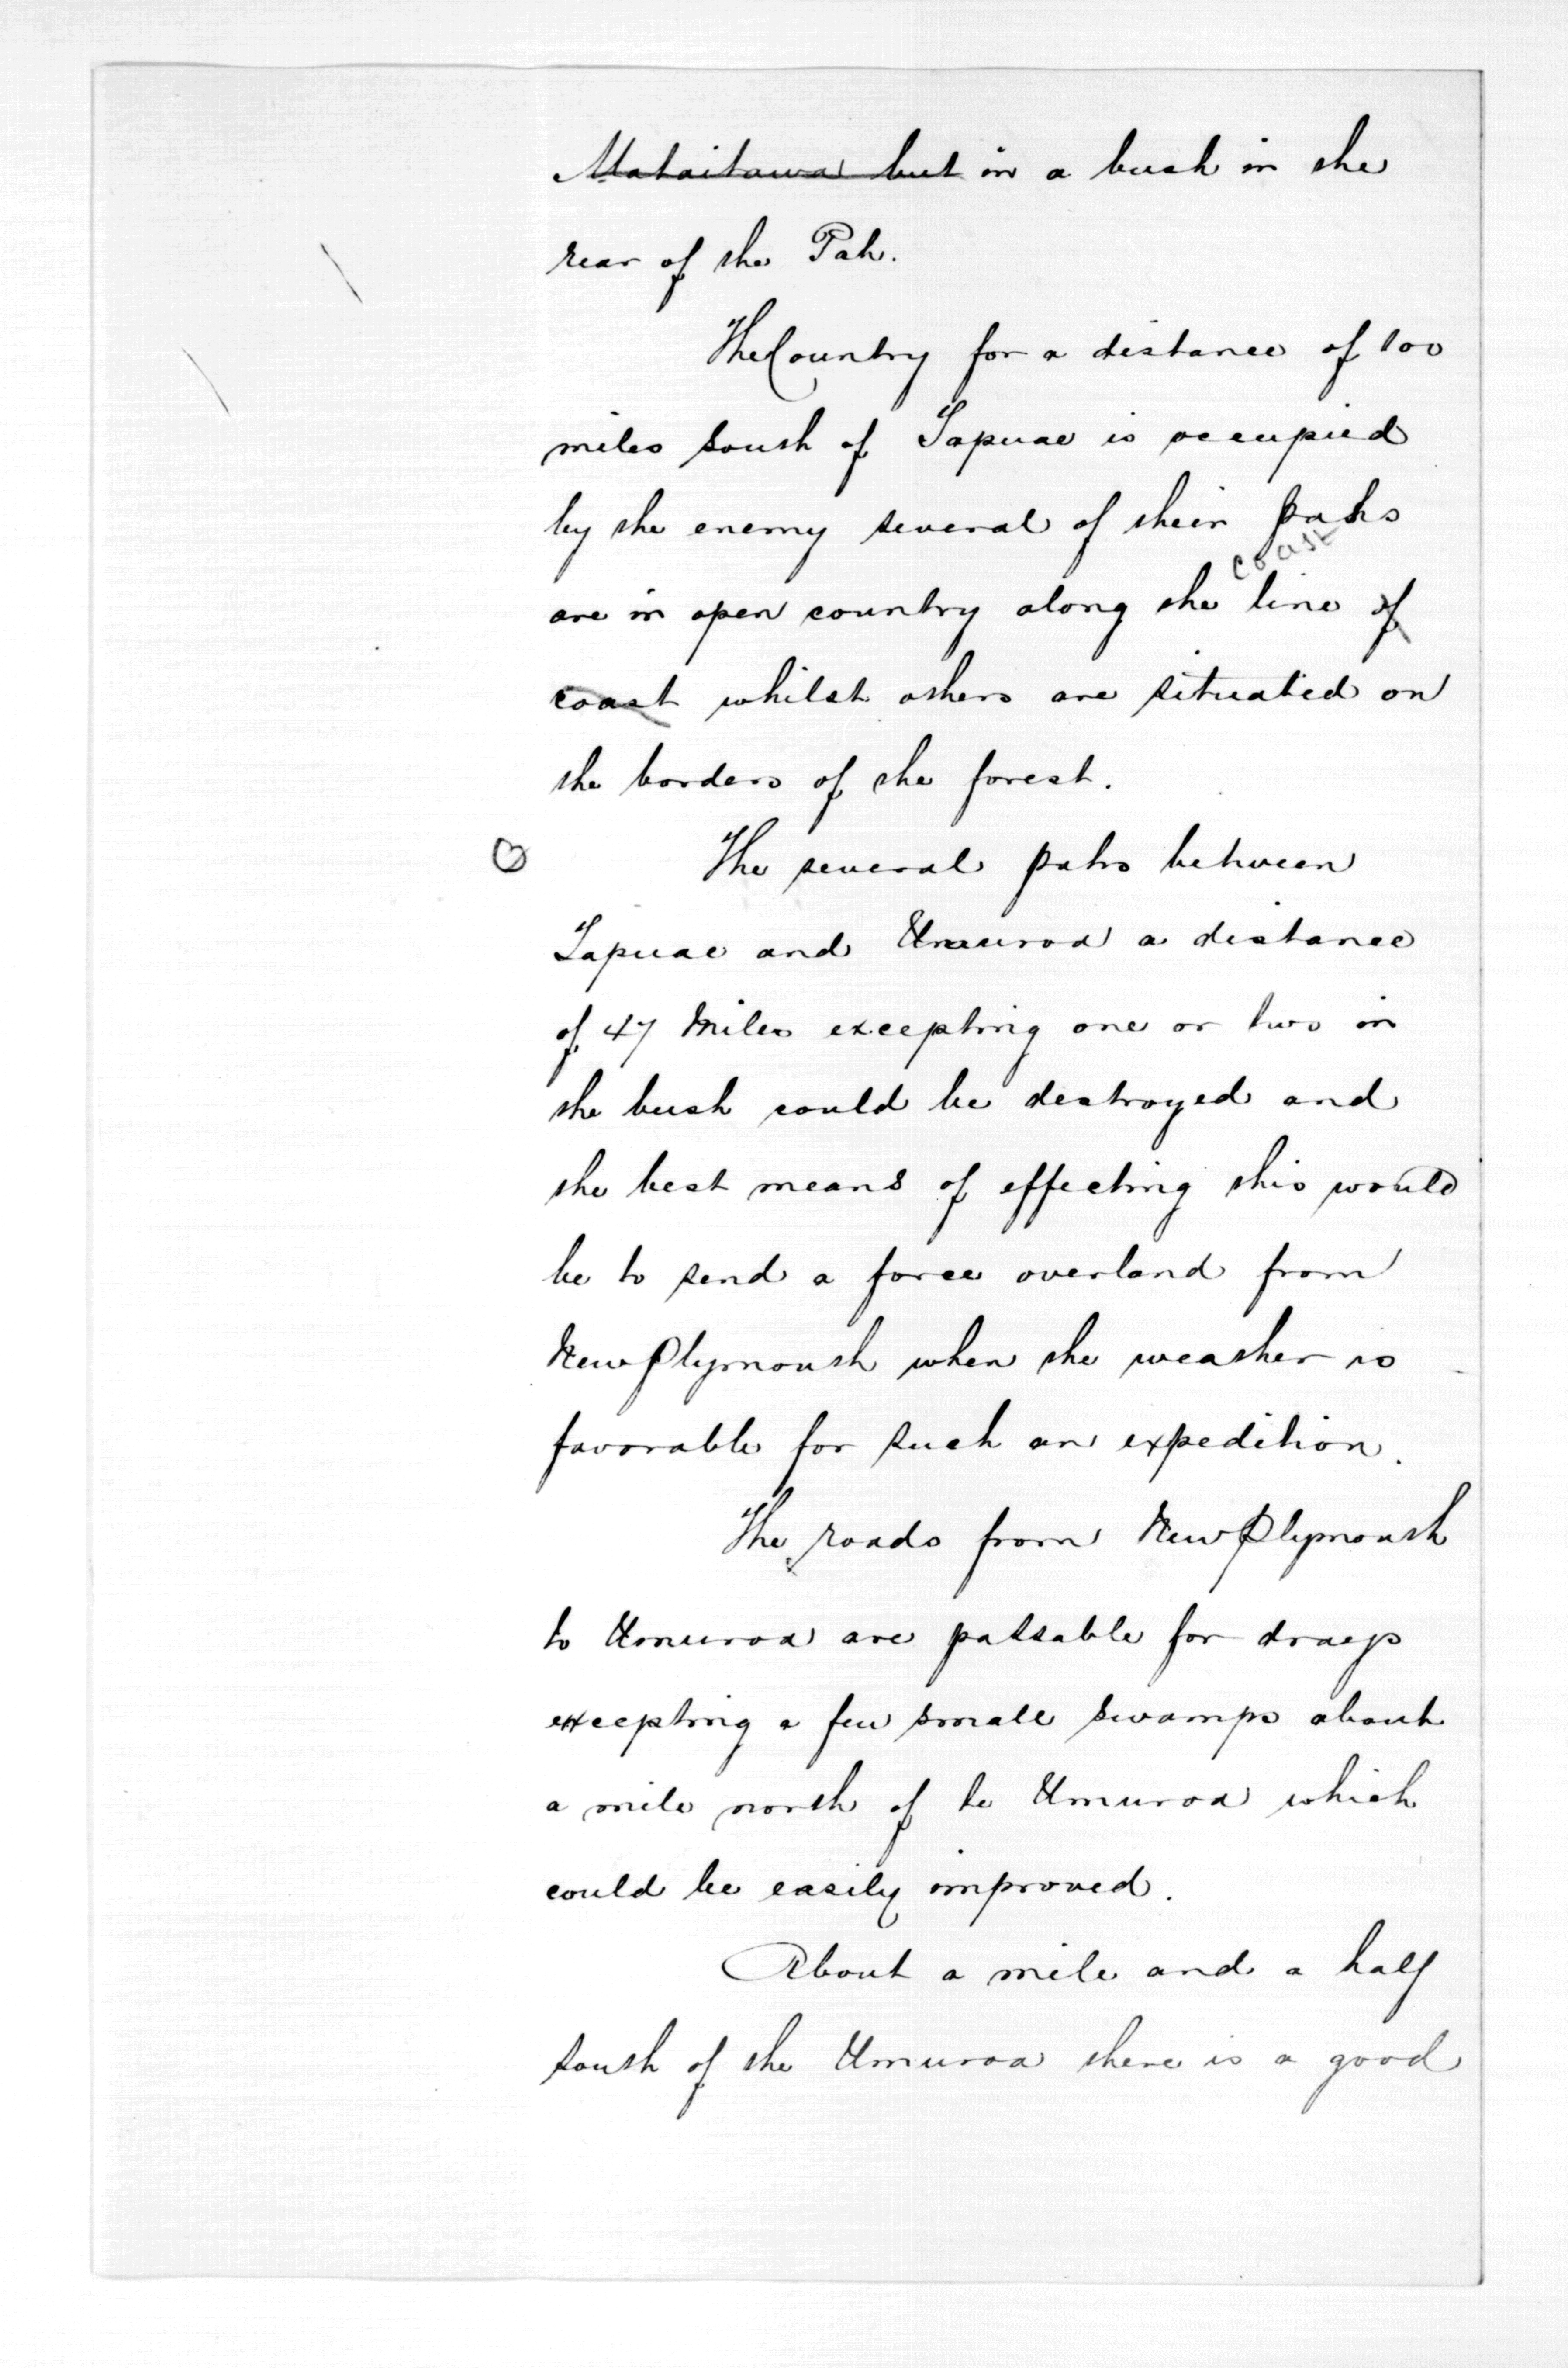 Mataitawa but in a bush in the
rear of the Pah.
The Country for a distance of 100
miles South of Tapuae is occupied
by the enemy several of their pahs
are in open country along the coast line of
coast whilst others are situated on
the borders of the forest.
The several pahs between
Tapuae and Umuroa a distance
of 47 Miles excepting one or two in
the bush could be destroyed and
the best means of effecting this would
be to send a force overland from
New Plymouth when the weather is
favorable for such an expedition.
The roads from New Plymouth
to Umuroa are passable for drays
excepting a few small swamps about
a mile north of te Umuroa which
could be easily improved.
About a mile and a half
South of the Umuroa there is a good